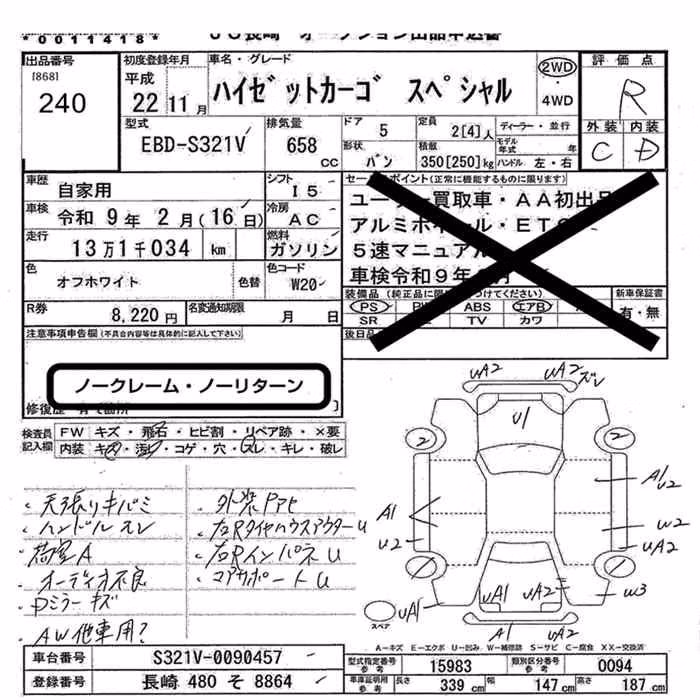 *0011418*
出品番号
[868]
240
初度登録年月
平成
22年11月
車名・グレード
ハイゼットカーゴ スペシャル
2WD・4WD
評価点
R
外装 内装
C D
型式
EBD-S321V
排気量
658 cc
ドア
5
定員
2[4]人
ディーラー・並行
モデル年式 年
形状
バン
積載
350[250]kg
ハンドル 左・右
車歴
自家用
シフト
I5
車検
令和 9年 2月(16日)
冷房
AC
走行
13万1千034 km
燃料
ガソリン
色
オフホワイト
色替
色コード
W20
R券
8,220円
名変通知期限
月 日
セールスポイント(正常に機能するものに限ります)
ユーザー買取車・AA初出品
アルミホイール・ETC
5速マニュアル
車検令和9年2月
装備品(純正品に限り〇をつけてください)
PS PW ABS エアB
SR TV カワ
新車保証書
有・無
後日品
注意事項申告欄(不具合内容等は具体的に記入して下さい)
ノークレーム・ノーリターン
修復歴 有で箇所
検査員記入欄
FW キズ・飛石・ヒビ割・リペア跡・×要
内装 キズ・汚れ・コゲ・穴・スレ・キレ・破レ
・天張リキバミ
・ハンドルスレ
・荷室A
・オーディオ不良
・Dミラーキズ
・AW他車用?
・外装ドアヒ
・右RタイヤハウスアウターU
・右RインパネU
・コアサポートU
UA2 UA2 ズレ
U1
2 2
A1
U2
A1
U2
W2
UA2
W3
UA1 UA1 UA2
A1 UA2
スペア
A=キズ E=エクボ U=凹み W=補修跡 S=サビ C=腐食 XX=交換済
車台番号
S321V-0090457
登録番号
長崎 480 そ 8864
型式指定番号 参考
15983
類別区分番号 参考
0094
車庫証明用 参考
長さ 339cm 幅 147cm 高さ 187cm